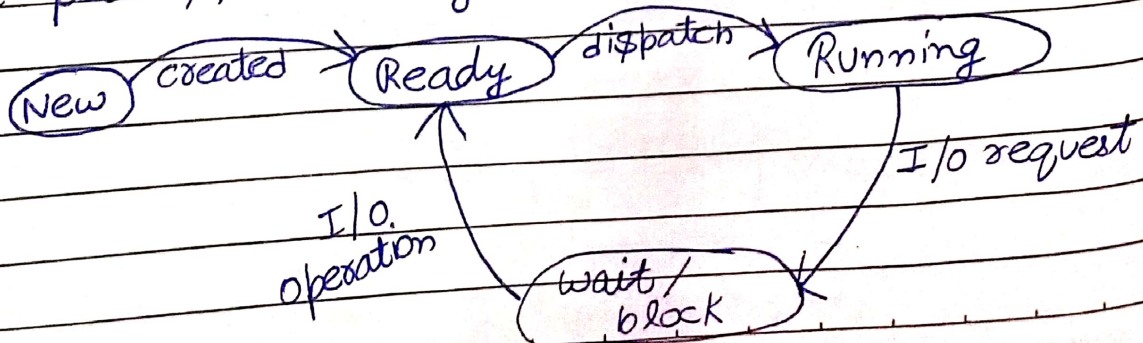 New
created
Ready
dispatch
Running
I/O request
I/O.
operation
wait/
block